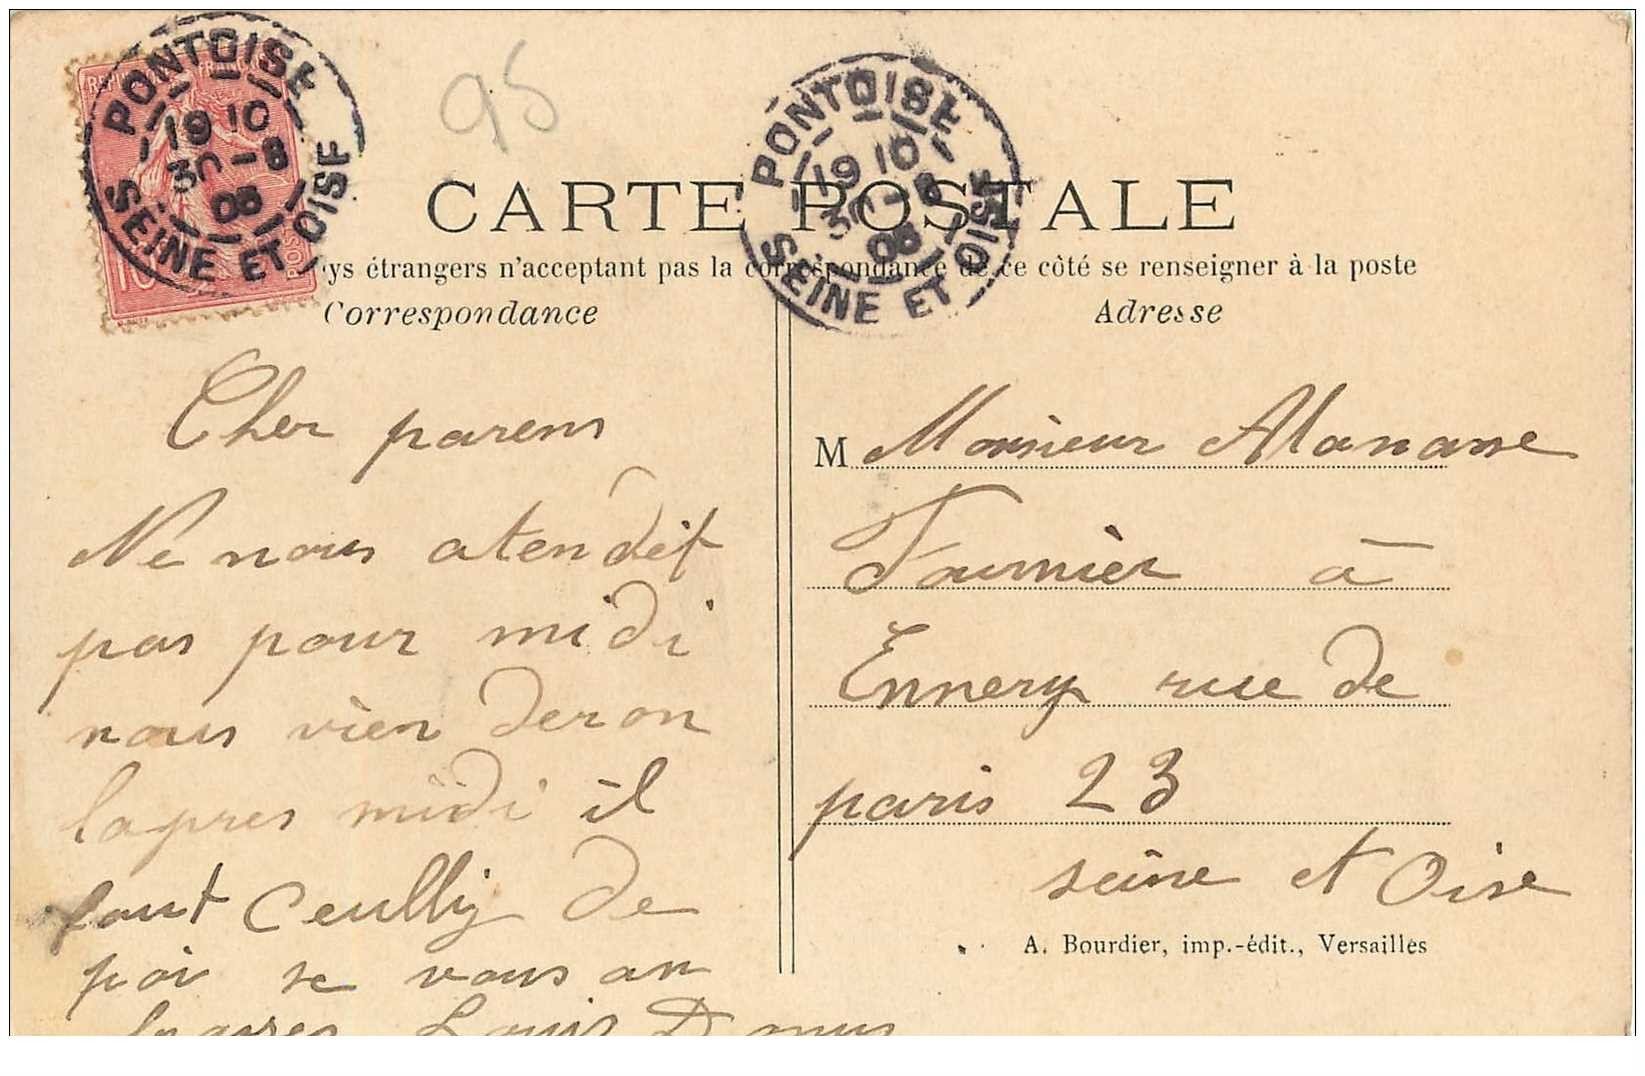 REPUBLIQUE FRANÇAISE
10
POSTES
PONTOISE
19 10
30 - 8
08
SEINE ET OISE
95
PONTOISE
19 10
30 - 8
08
SEINE ET OISE
CARTE POSTALE
ys étrangers n'acceptant pas la correspondance de ce côté se renseigner à la poste
Correspondance
Adresse
Cher parens
Ne nous atendèt
pas pour midi
nous vien deron
lapres midi il
faut Ceullij de
poi se vous an
Louis
M Monsieur
Fournier à
Ennery rue de
paris 23
seine et Oise
A. Bourdier, imp.-édit., Versailles